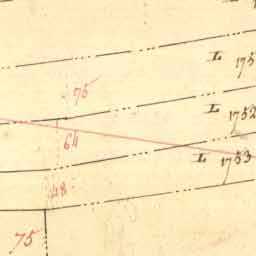 L 175
75
L 1752
64
L 1753
48
75